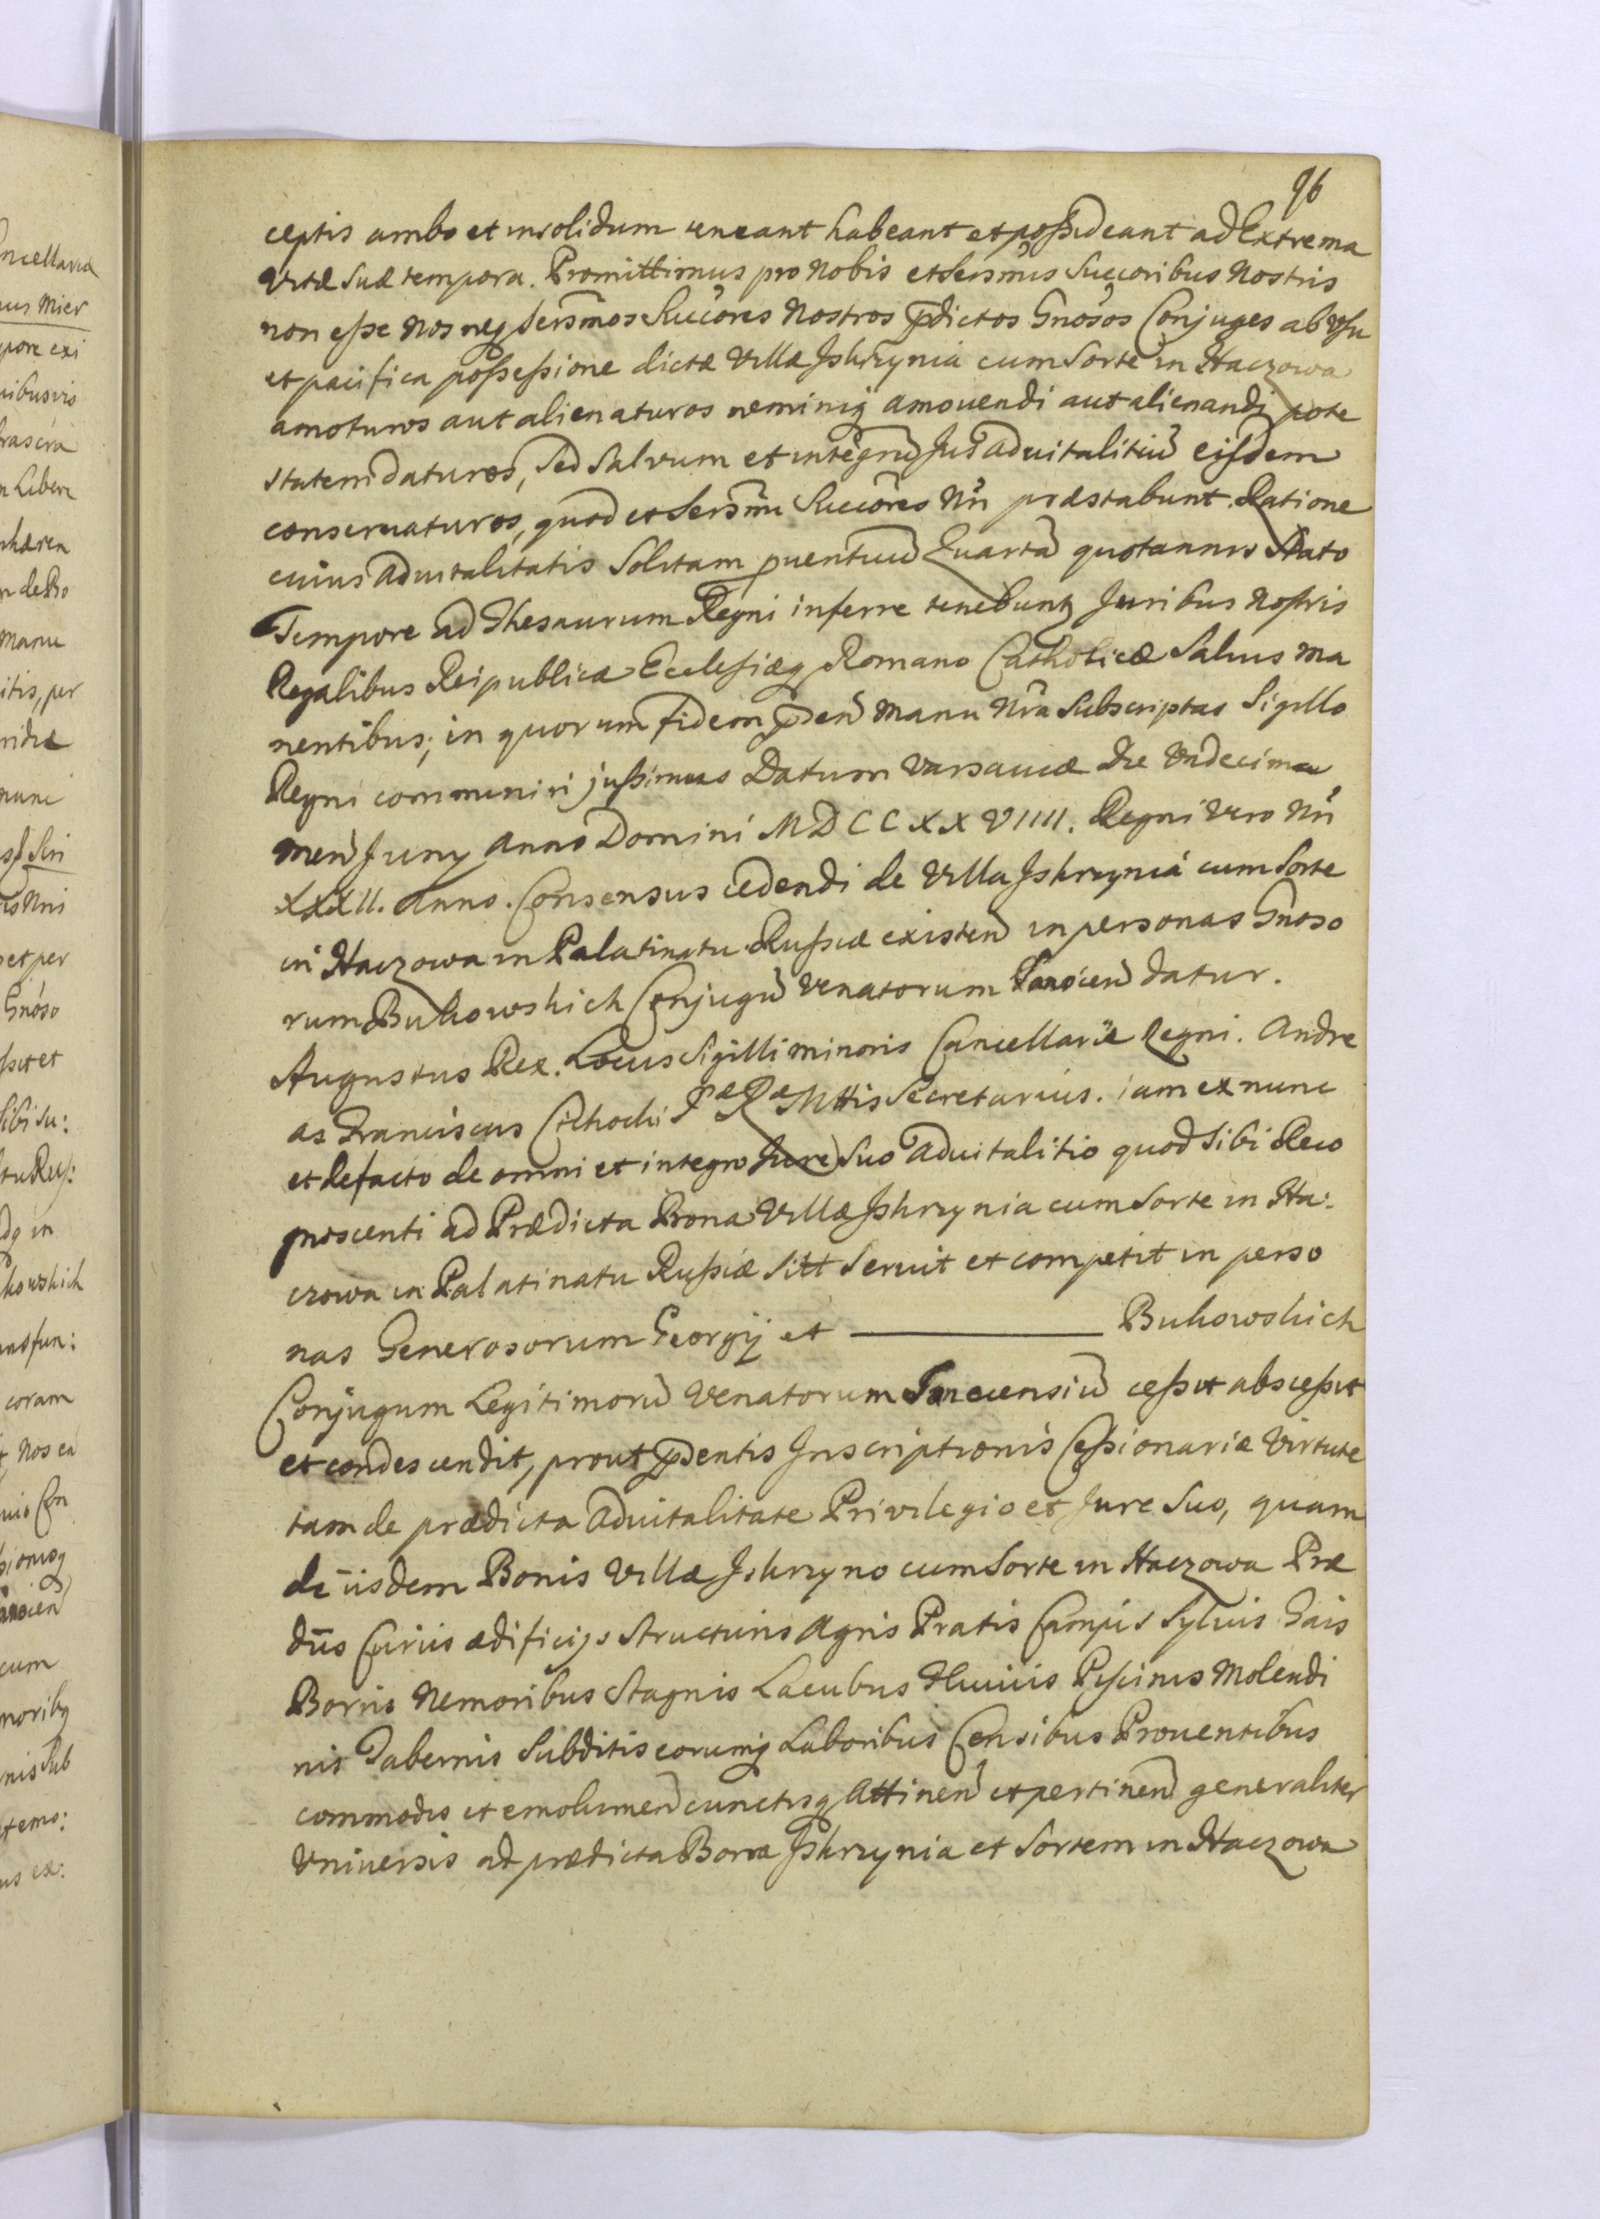 96
ceptis ambo et insolidum teneant habeant et possideant ad Extrema
vitæ suæ tempora. Promittimus pro Nobis et Sersmis Succoribus Nostris
non esse Nos neq Sersmos Succores Nostros pdictos Gnosos Conjuges ab Usu
et pacifica possessione dictæ Villæ Iskrzynia cum Sorte in Haczowa
amoturos aut alienaturos neminiq amovendi aut alienandi pote
statem daturos, sed salvum et integrũ Jus Advitalitiũ eisdem
conservaturos, quod et Sersmi Succores Nri præstabunt. Ratione
cuius Advitalitatis Solitam pventuũ Quartã quotannis Stato
Tempore ad Thesaurum Regni inferre tenebunt Juribus Nostris
Regalibus Reipublicæ Ecclesiæq Romano Catholicæ Salvis ma
nentibus; in quorum fidem pñ manu Nra Subscriptas Sigillo
Regni communiri jussimus Datum Varsaviæ Die Undecima
men Juny Anno Domini MDCCXXVIIII. Regni Vero Nri
XXXII. Anno. Consensus cedendi de Villa Iskrzynia cum Sorte
in Haczowa in Palatinatu Russiæ existeñ in personas Gnoso
rum Bukowskich Conjugũ Venatorum Sanocieñ datur.
Augustus Rex. Locus Sigilli minoris Cancellariæ Regni. Andre
as Franciscus Cichocki Sæ Ræ Mttis Secretarius. iam ex nunc
et de facto de omni et integro Jure Suo Advitalitio quod Sibi Reco
gnoscenti ad Prædicta Bona Villæ Iskrzynia cum Sorte in Ha:
czowa in Palatinatu Russiæ Sitt Servit et competit in perso
nas Generosorum Georgij et ———— Bukowskich
Conjugum Legitimorũ Venatorum Sanocensiũ cessit abscessit
et condescendit, prout pdentis Inscriptionis Cessionariæ Virtute
tam de prædicta Advitalitate Privilegio et Jure Suo, quam
de iisdem Bonis Villæ Iskrzyno cum Sorte in Haczowa Præ
diis Curiis ædificijs Structuris Agris Pratis Campis Sylvis Gais
Borris Nemoribus Stagnis Lacubus Fluviis Piscinis Molendi
nis Tabernis Subditis eorumq Laboribus Censibus Proventibus
commodis et emolumeñ cunctisq Attineñ et pertineñ generaliter
Universis ad prædicta Bona Iskrzynia et Sortem in Haczowa